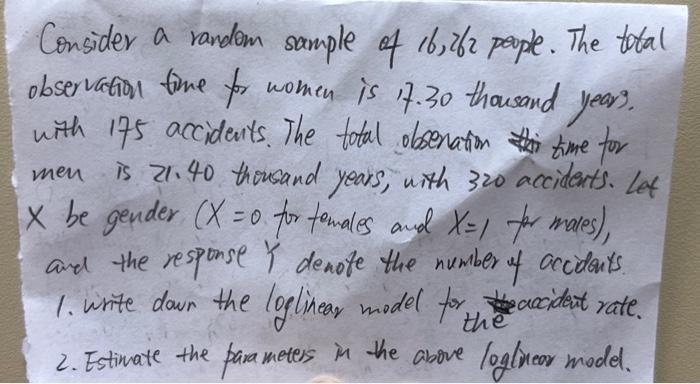 Consider a random sample of 16,262 people. The total
observation time for women is 17.30 thousand years,
with 175 accidents. The total observation time for
men is 21.40 thousand years, with 320 accidents. Let
X be gender (X=0 for females and X=1 for males),
and the response Y denote the number of accidents.
1. write down the loglinear model for the accident rate.
2. Estimate the parameters in the above loglinear model.